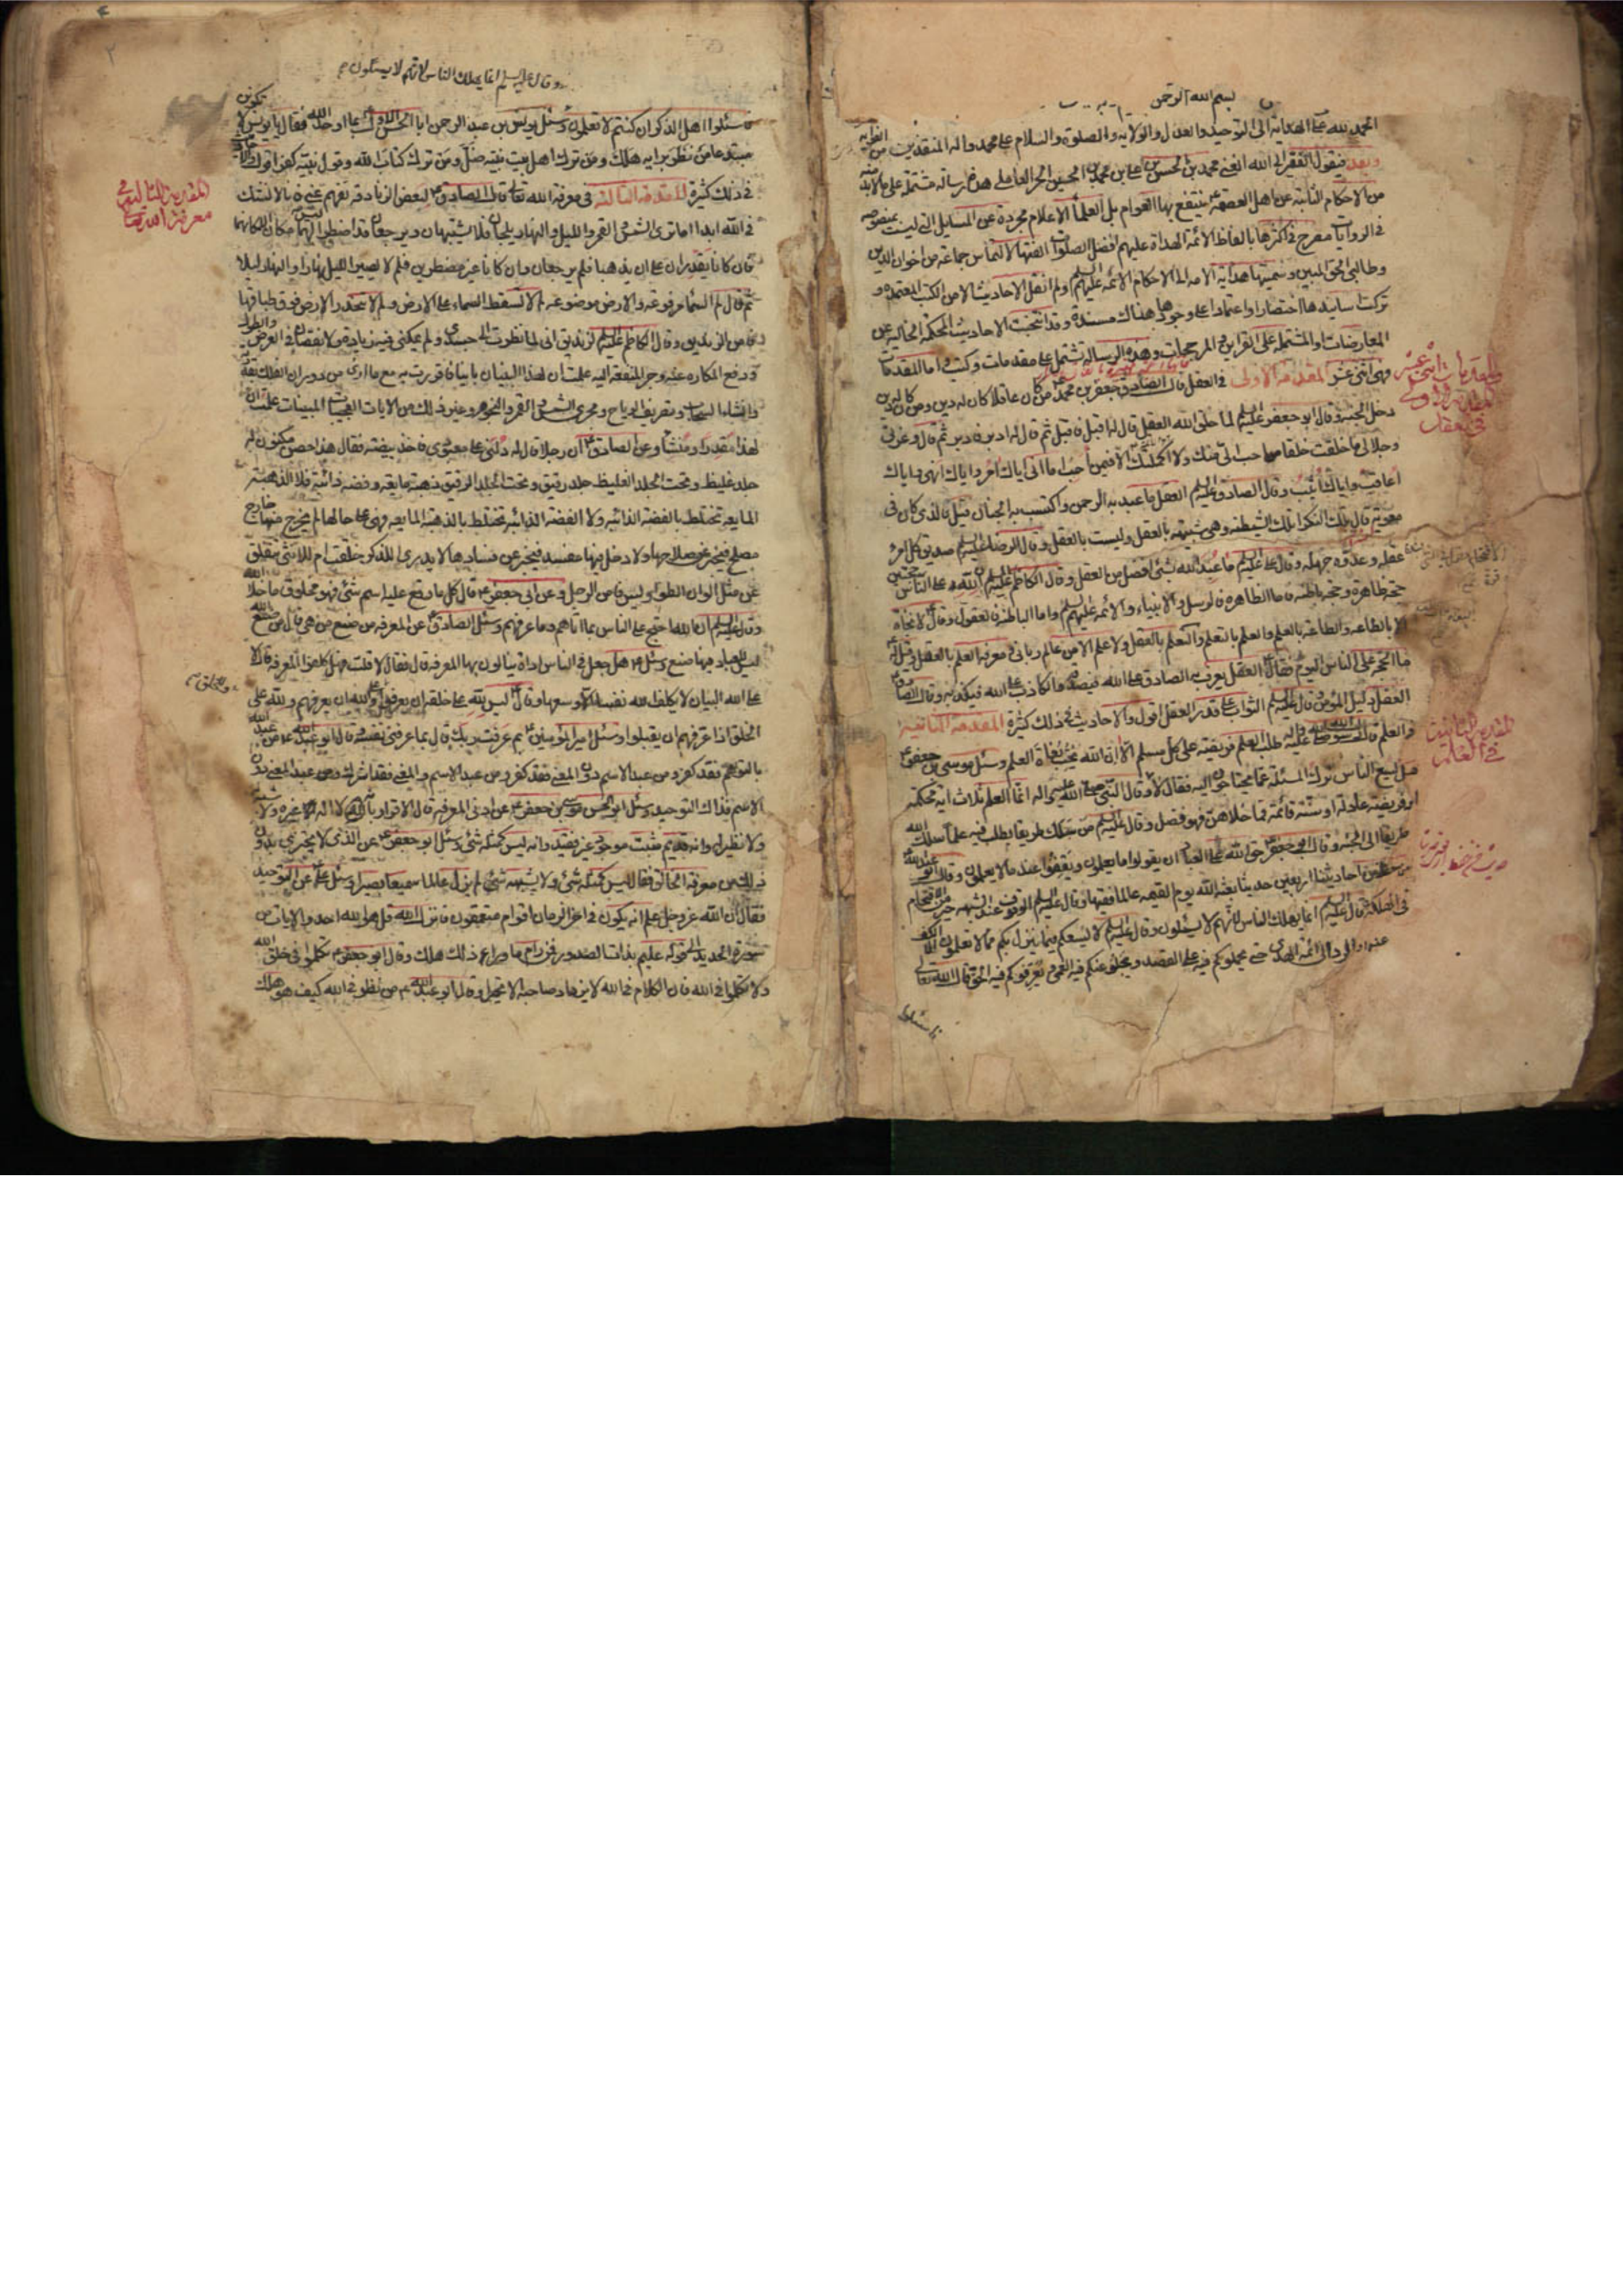 بسم الله الرحمن
الحمد لله على الهداية الى التوحيد والعدل والولايه والصلوة والسلام على محمد واله المنقذين من الغوايه
وبعد فيقول الفقير الى الله الغني محمد بن الحسن بن على بن محمد بن الحسين الحر العاملى هذه رسالة مشتملة على ما لابد منه
من الاحكام الثابتة عن اهل العصمة ينتفع بها العوام بل العلماء الاعلام مجردة عن المسايل التى ليست بمنصوصه
فى الروايات مصرح فى اكثرها بالفاظ الائمة الهداة عليهم افضل الصلوات الفتها لالتماس جماعة من اخوان الدين
وطالبى الحق المبين وسميتها هداية الامه الى احكام الائمه عليهم السلم ولم انقل الاحاديث الا من الكتب المعتمده و
تركت اسانيدها اختصارا واعتمادا على وجودها هناك مسندة وقد انتخبت الاحاديث المحكمة الخاليه عن
المعارضات والمشتملة على القراين والمرجحات وهذه الرسالة تشتمل على مقدمات وكتب اما المقدمات
فهى اثنى عشر المقدمة الاولى فى العقل قال الصادق جعفر بن محمد ع من كان عاقلا كان له دين ومن كان له دين
دخل الجنة وقال ابو جعفر عليه السلم لما خلق الله العقل قال له اقبل فاقبل ثم قال له ادبر فادبر ثم قال وعزتى
وجلالى ما خلقت خلقا هو احب الى منك ولا اكملتك الا فيمن احب اما انى اياك امر واياك انهى واياك
اعاقب واياك اثيب وقال الصادق عليه السلم العقل ما عبد به الرحمن واكتسب به الجنان قيل فالذى كان فى
معوية قال تلك النكرا تلك الشيطنة وهى شبيهة بالعقل وليست بالعقل وقال الرضا عليه السلم صديق كل امرء
عقله وعدوه جهله وقال على عليه السلم ما عبد الله بشئ افضل من العقل وقال الكاظم عليه السلم ان لله على الناس حجتين
حجة ظاهرة وحجة باطنة فاما الظاهره فالرسل والانبياء والائمه عليهم السلم واما الباطنة فالعقول وقال لا نجاة
الا بالطاعه والطاعة بالعلم والعلم بالتعلم والتعلم بالعقل ولا علم الا من عالم ربانى ومعرفة العلم بالعقل وقيل له
ما الحجة على الناس اليوم فقال العقل يعرف به الصادق على الله فيصدقه والكاذب على الله فيكذبه وقال الصادق
العقل دليل المؤمن وقال عليه السلم الثواب على قدر العقل اقول والاحاديث فى ذلك كثيرة المقدمة الثانية
فى العلم قال عليه واله طلب العلم فريضة على كل مسلم الا ان الله يحب بغاة العلم وسئل موسى بن جعفر ع
هل يسع الناس ترك المسئلة عما يحتاجون اليه فقال لا وقال النبى صلى الله عليه واله انما العلم ثلاث اية محكمة
او فريضة عادلة او سنة قائمة فما خلاهن فهو فضل وقال عليه السلم من سلك طريقا يطلب فيه علما سلك الله
طريقا الى الجنة وقال ابو جعفر ع حق الله على العباد ان يقولوا ما يعلمون ويقفوا عند ما لا يعلمون وقال ابو عبد الله
من حفظ من احاديثنا اربعين حديثا بعثه الله يوم القيمه عالما فقيها وقال عليه السلم الوقوف عند الشبهه خير من اقتحام
فى الهلكة قال عليه السلم انما يهلك الناس لانهم لا يسئلون وقال عليه السلم لا يسعكم فيما ينزل بكم مما لا تعلمون الا الكف
عنه والرد الى ائمة الهدى حتى يحملوكم فيه على القصد ويجلوا عنكم فيه العمى ويعرفوكم فيه الحق قال الله تعالى
فاسئلوا
المقدمة الاولى
فى العقل
المقدمة الثانية
فى العلم
وقال عليه السلم انما يهلك الناس لانهم لا يسئلون
فاسئلوا اهل الذكر ان كنتم لا تعلمون وسئل يونس بن عبد الرحمن ابا الحسن الاول ع بما اوحد الله فقال يا يونس لا تكونن
مبتدعا من نظر برايه هلك ومن ترك اهل بيت نبيه ضل ومن ترك كتاب الله وقول نبيه كفر اقول
فى ذلك كثيرة المقدمة الثالثة فى معرفة الله تعالى قال الصادق ع لبعض الزنادقه تفهم عنى فانا لا نشك
فى الله ابدا اما ترى الشمس والقمر والليل والنهار يلجان فلا يشتبهان ويرجعان قد اضطرا ليس لهما مكان الا مكانهما
فان كانا يقدران على ان يذهبا فلم يرجعان وان كانا غير مضطرين فلم لا يصير الليل نهارا والنهار ليلا
ثم قال لم السماء مرفوعه والارض موضوعه لم لا تسقط السماء على الارض ولم لا تنحدر الارض فوق طباقها
فامن الزنديق وقال الكاظم عليه السلم لزنديق انى لما نظرت الى جسدى ولم يمكنى فيه زيادة ولا نقصان فى العرض والطول
ودفع المكاره عنه وجر المنفعة اليه علمت ان لهذا البنيان بانيا فاقررت به مع ما ارى من دوران الفلك بقدرته
وانشاء السحاب وتصريف الرياح ومجرى الشمس والقمر والنجوم وغير ذلك من الايات العجيبات المبينات علمت ان
لهذا مقدرا ومنشأ وعن الصادق ع ان رجلا قال له دلنى على معبودى فاخذ بيضة فقال هذا حصن مكنون له
جلد غليظ وتحت الجلد الغليظ جلد رقيق وتحت الجلد الرقيق ذهبة مايعه وفضة ذائبة فلا الذهبة
المايعه تختلط بالفضة الذائبه ولا الفضة الذائبه تختلط بالذهبة المايعه فهى على حالها لم يخرج منها خارج
مصلح فيخبر عن صلاحها ولا دخل فيها مفسد فيخبر عن فسادها لا يدرى للذكر خلقت ام للانثى تنفلق
عن مثل الوان الطواويس فامن الرجل وعن ابى جعفر ع قال كل ما وقع عليه اسم شئ فهو مخلوق ما خلا الله
وقال عليه السلم ان الله احتج على الناس بما اتاهم وما عرفهم وسئل الصادق ع عن المعرفه من صنع من هى قال من صنع الله
ليس للعباد فيها صنع وسئل ع هل جعل فى الناس اداة ينالون بها المعرفة قال فقال لا قلت فهل كلفوا المعرفة قال لا
على الله البيان لا يكلف الله نفسا الا وسعها وقال ع ليس لله على خلقه ان يعرفوا ولله ان يعرفهم ولله على
الخلق اذا عرفهم ان يقبلوا وسئل امير المؤمنين ع بم عرفت ربك قال بما عرفنى نفسه وقال ابو عبد الله ع من عبد الله
بالتوهم فقد كفر ومن عبد الاسم دون المعنى فقد كفر ومن عبد الاسم والمعنى فقد اشرك ومن عبد المعنى دون
الاسم فذاك التوحيد وسئل ابو الحسن موسى بن جعفر ع عن ادنى المعرفة قال الاقرار بانه لا اله غيره ولا شبه
ولا نظير له وانه قديم مثبت موجود غير فقيد وانه ليس كمثله شئ وسئل ابو جعفر ع عن الذى لا يجتزى بدون
ذلك من معرفة الخالق فقال ليس كمثله شئ ولا يشبهه شئ لم يزل عالما سميعا بصيرا وسئل ع عن التوحيد
فقال ان الله عز وجل علم انه يكون فى اخر الزمان اقوام متعمقون فانزل الله قل هو الله احد والايات من
سورة الحديد الى قوله عليم بذات الصدور فمن رام ما وراء ذلك هلك وقال ابو جعفر ع تكلموا فى خلق الله
ولا تتكلموا فى الله فان الكلام فى الله لا يزداد صاحبه الا تحيرا وقال ابو عبد الله ع من نظر فى الله كيف هو هلك
المقدمة الثالثة فى
معرفة الله تعالى